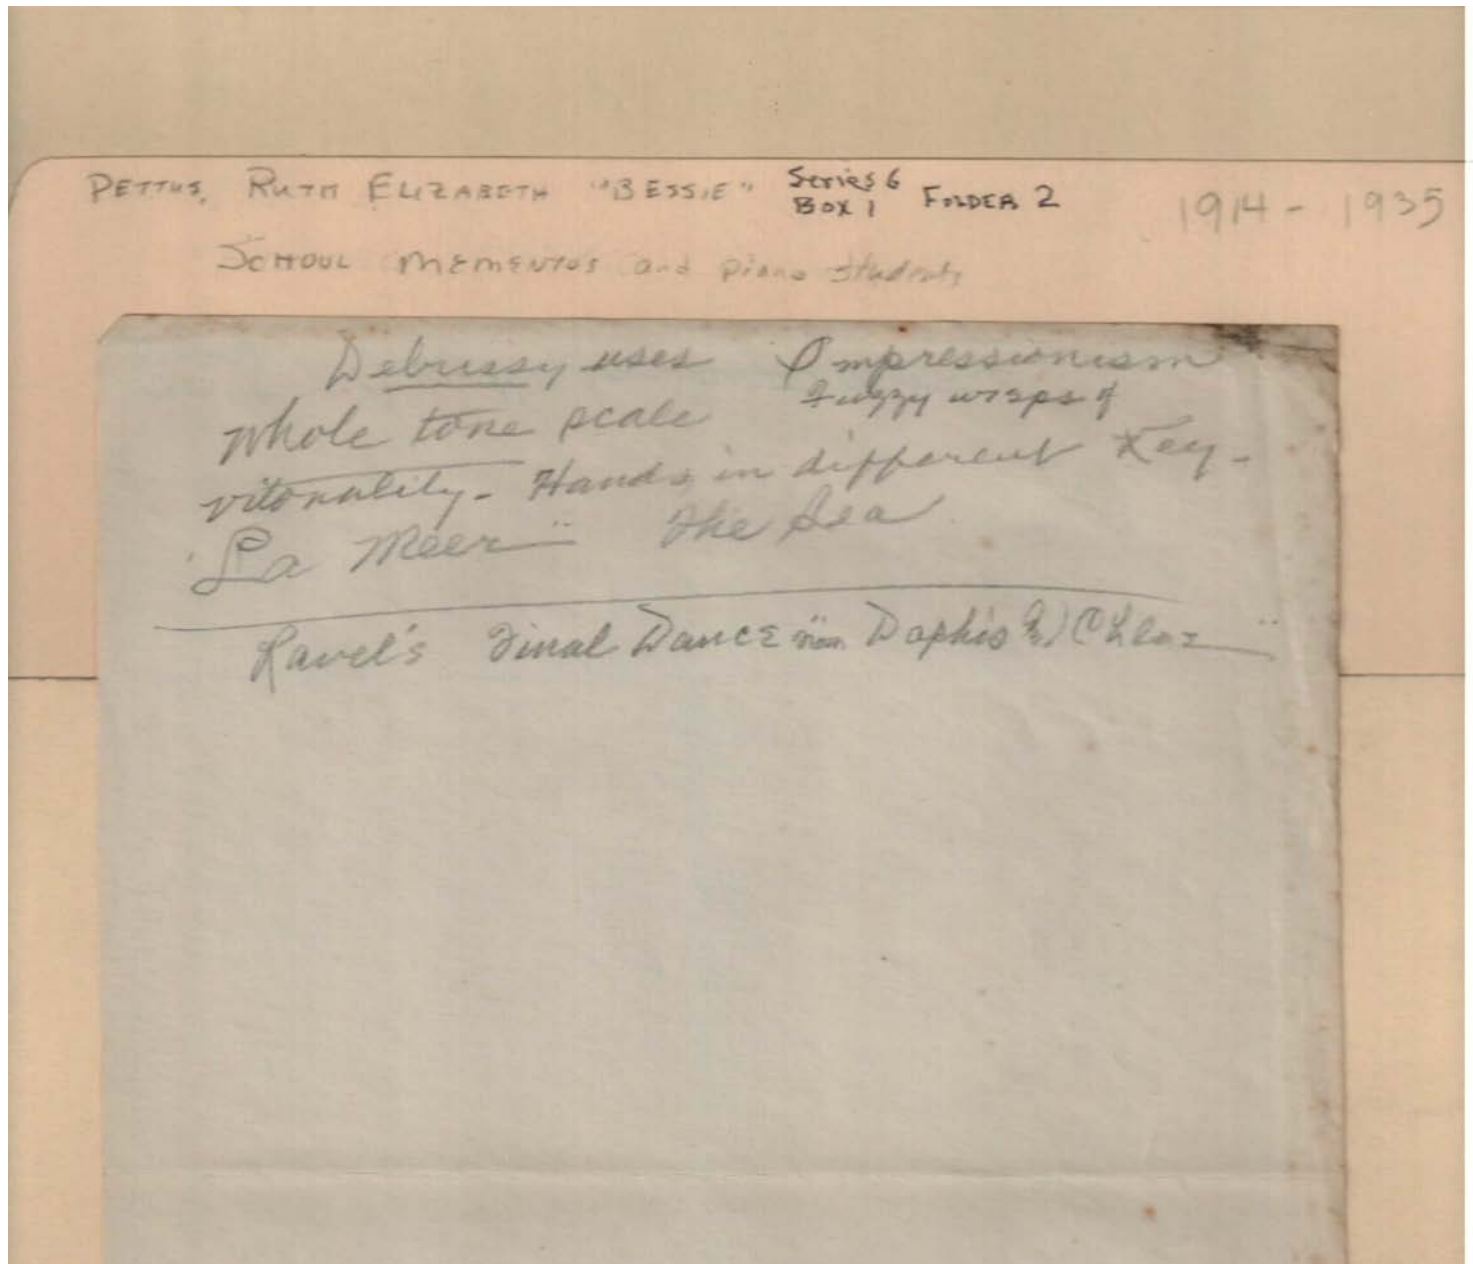 PETTUS, RUTH ELIZABETH "BESSIE" Series 6 Box 1 FOLDER 2 1914 - 1935
SCHOOL MEMENTOS and piano students
Debussy uses Impressionism
whole tone scale fuzzy wraps of
vitonality - Hands in different Key -
"La Meer" The Sea
Ravel's Final Dance from Daphis & Chloe"